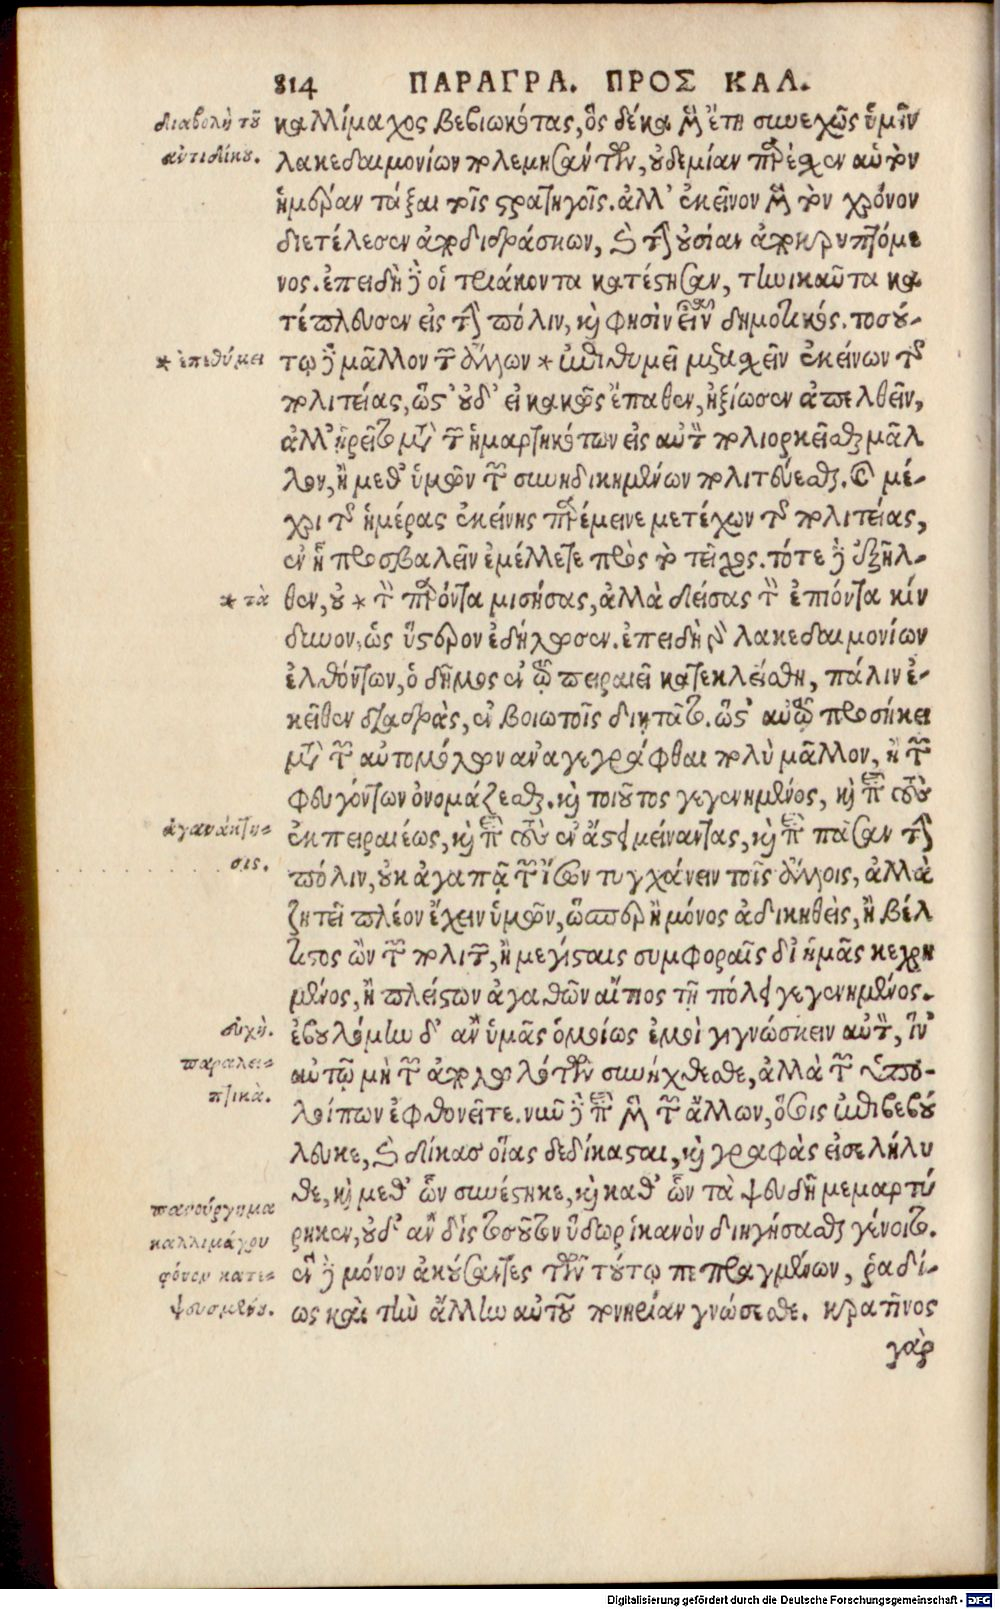 814 ΠΑΡΑΓΡΑ. ΠΡΟΣ ΚΑΛ.
διαβολὴ τοῦ
ἀντιδίκου.
καλλίμαχος βεβιωκότας, ὃς δέκα μὲν ἔτη συνεχῶς ὑμῖν
λακεδαιμονίων πολεμησάντων, οὐδεμίαν παρέσχεν αὑτὸν
ἡμέραν τάξαι τοῖς στρατηγοῖς. ἀλλ’ ἐκεῖνον μὲν τὸν χρόνον
διετέλεσεν ἀποδιδράσκων, καὶ τὴν οὐσίαν ἀποκρυπτόμε
νος. ἐπειδὴ δὲ οἱ τριάκοντα κατέστησαν, τηνικαῦτα κα
τέπλευσεν εἰς τὴν πόλιν, καὶ φησὶν εἶναι δημοτικός. τοσού-
* ἐπεθύμει
τῳ δὲ μᾶλλον τῶν ἄλλων * ἐπιθυμεῖ μετασχεῖν ἐκείνων τῆς
πολιτείας, ὥστ’ οὐδ’ εἰ κακῶς ἔπαθεν, ἠξίωσεν ἀπελθεῖν,
ἀλλ’ ᾑρεῖτο μετὰ τῶν ἡμαρτηκότων εἰς αὐτὸν πολιορκεῖσθαι μᾶλ
λον, ἢ μεθ’ ὑμῶν τῶν συνηδικημένων πολιτεύεσθαι. καὶ μέ-
χρι τῆς ἡμέρας ἐκείνης παρέμεινε μετέχων τῆς πολιτείας,
ἐν ᾗ προσβαλεῖν ἐμέλλετε πρὸς τὸ τεῖχος. τότε δὲ ἐξῆλ-
* τὰ
θεν, οὐ * τὸν παρόντα μισήσας, ἀλλὰ δείσας τὸν ἐπιόντα κίν
δυνον, ὡς ὕστερον ἐδήλωσεν. ἐπειδὴ γὰρ λακεδαιμονίων
ἐλθόντων, ὁ δῆμος ἐν τῷ πειραιεῖ κατεκλείσθη, πάλιν ἐ-
κεῖθεν διαδρὰς, ἐν βοιωτοῖς διῃτᾶτο. ὥστ’ αὐτῷ προσήκει
μετὰ τῶν αὐτομόλων ἀναγεγράφθαι πολὺ μᾶλλον, ἢ τῶν
φευγόντων ὀνομάζεσθαι. καὶ τοιοῦτος γεγενημένος, καὶ περὶ τοὺς
ἀγανάκτη-
σις.
ἐκ πειραιέως, καὶ περὶ τοὺς ἐν ἄστει μείναντας, καὶ περὶ πᾶσαν τὴν
πόλιν, οὐκ ἀγαπᾷ τῶν ἴσων τυγχάνειν τοῖς ἄλλοις, ἀλλὰ
ζητεῖ πλέον ἔχειν ὑμῶν, ὥσπερ ἢ μόνος ἀδικηθεὶς, ἢ βέλ
τιστος ὢν τῶν πολιτῶν, ἢ μεγίσταις συμφοραῖς δι’ ἡμᾶς κεχρη
μένος, ἢ πλείστων ἀγαθῶν αἴτιος τῇ πόλει γεγενημένος.
εὐχὴ.
παραλει-
πτικὰ.
ἐβουλόμην δ’ ἂν ὑμᾶς ὁμοίως ἐμοὶ γιγνώσκειν αὐτὸν, ἵν’
αὐτῷ μὴ τῶν ἀπολωλότων συνήχθεσθε, ἀλλὰ τῶν ὑπο-
λοίπων ἐφθονεῖτε. νῦν δὲ περὶ μὲν τῶν ἄλλων, ὅσοις ἐπιβεβού
λευκε, καὶ δίκας οἵας δεδίκασται, καὶ γραφὰς εἰσελήλυ
πανούργημα
καλλιμάχου
φόνον κατε-
ψευσμένου.
θε, καὶ μεθ’ ὧν συνέστηκε, καὶ καθ’ ὧν τὰ ψευδῆ μεμαρτύ
ρηκεν, οὐδ’ ἂν δὶς τοσοῦτον ὕδωρ ἱκανὸν διηγήσασθαι γένοιτο.
ἓν δὲ μόνον ἀκούσαντες τῶν τούτῳ πεπραγμένων, ῥᾳδί-
ως καὶ τὴν ἄλλην αὐτοῦ πονηρίαν γνώσεσθε. κρατῖνος
γὰρ
Digitalisierung gefördert durch die Deutsche Forschungsgemeinschaft - DFG